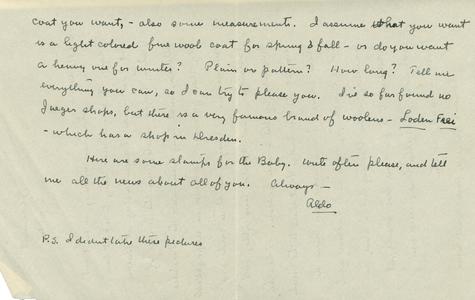 coat you want, - also some measurements. I assume what you want
is a light colored fine wool coat for spring & fall - or do you want
a heavy one for winter? Plain or pattern? How long? Tell me
everything you can, so I can try to please you. I've so far found no
Jaeger shops, but there is a very famous brand of woolens - Loden Frei
- which has a shop in Dresden.
Here are some stamps for the Baby. Write often please, and tell
me all the news about all of you. Always -
Aldo
P.S. I didn't take these pictures